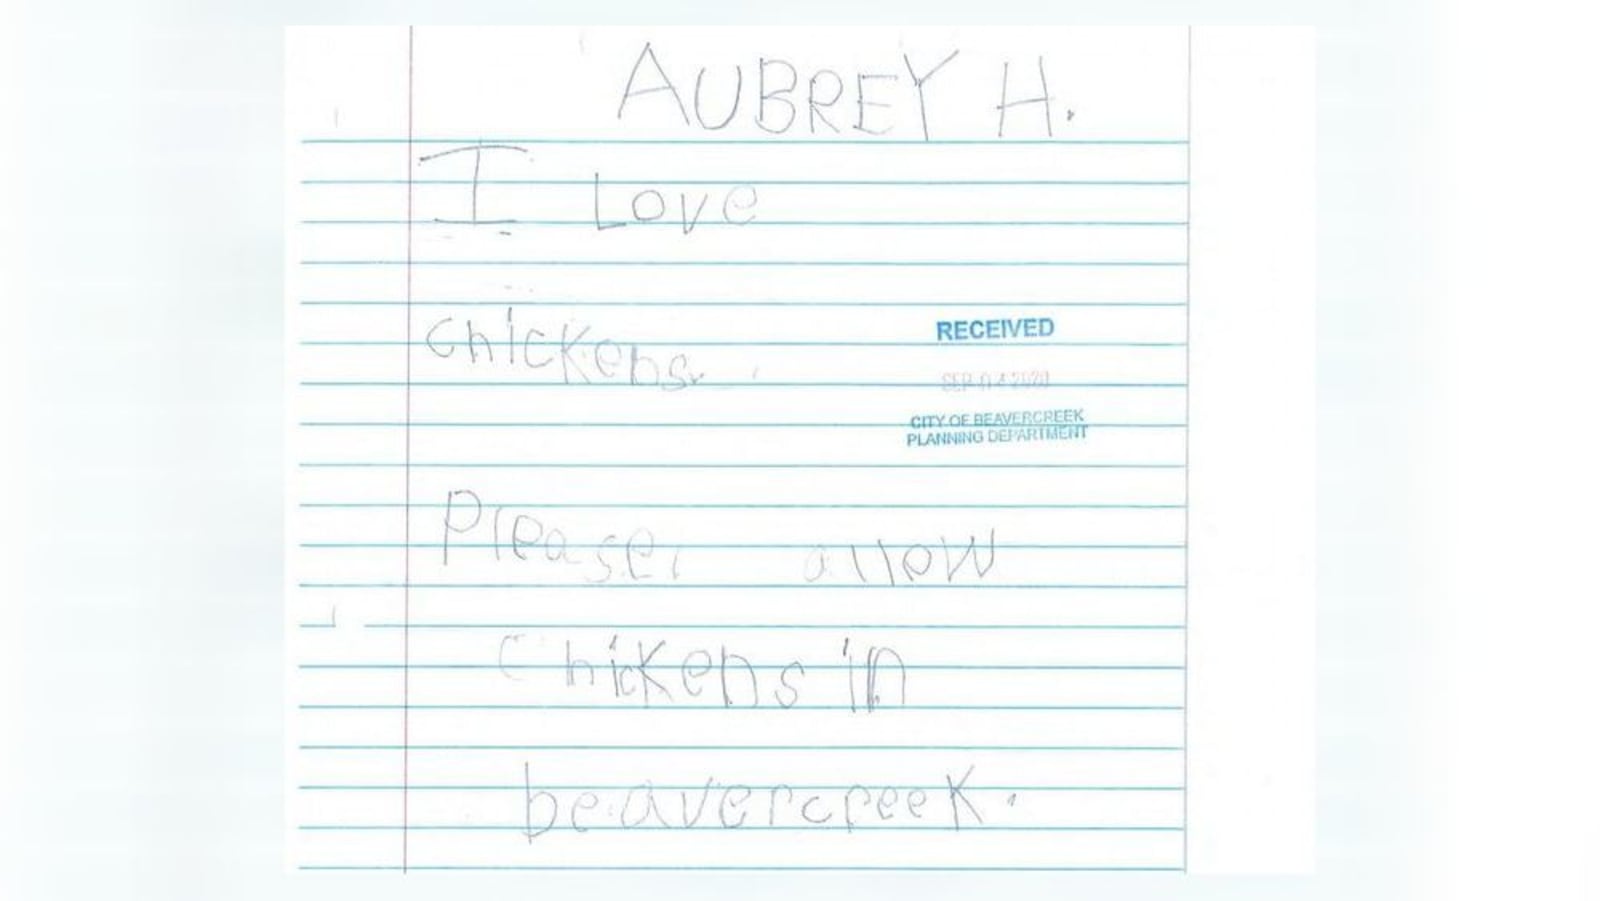 AUBREY H.
I Love
chickens.
RECEIVED
SEP 04 2020
CITY OF BEAVERCREEK
PLANNING DEPARTMENT
Please allow
Chickens in
beavercreek.